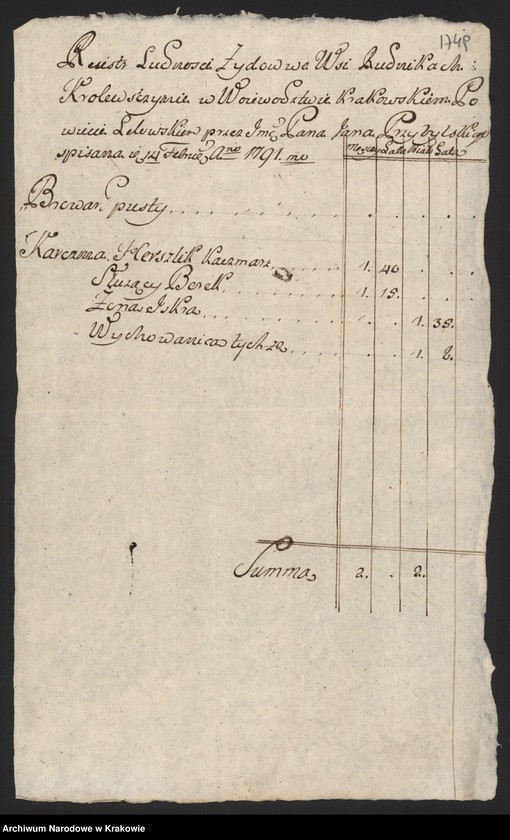 1749
Reiestr Ludnosci Zydow we Wsi Rudnikach:
Krolewszyznie w Woiewodztwie Krakowskiem Po
wiecie Lelowskiem przez Jmć Pana Jana Przybylskiego
spisana d. 14 Februar Ano 1791. mo
Męscy Lata Białe Lata
Browar pusty
Karczma. Herszlik Karzmarz 1. 40
Służący Berek 1. 15.
Zona Iska 1. 38.
Wychowanica tychze 1. 8.
Summa 2. 2.
Archiwum Narodowe w Krakowie